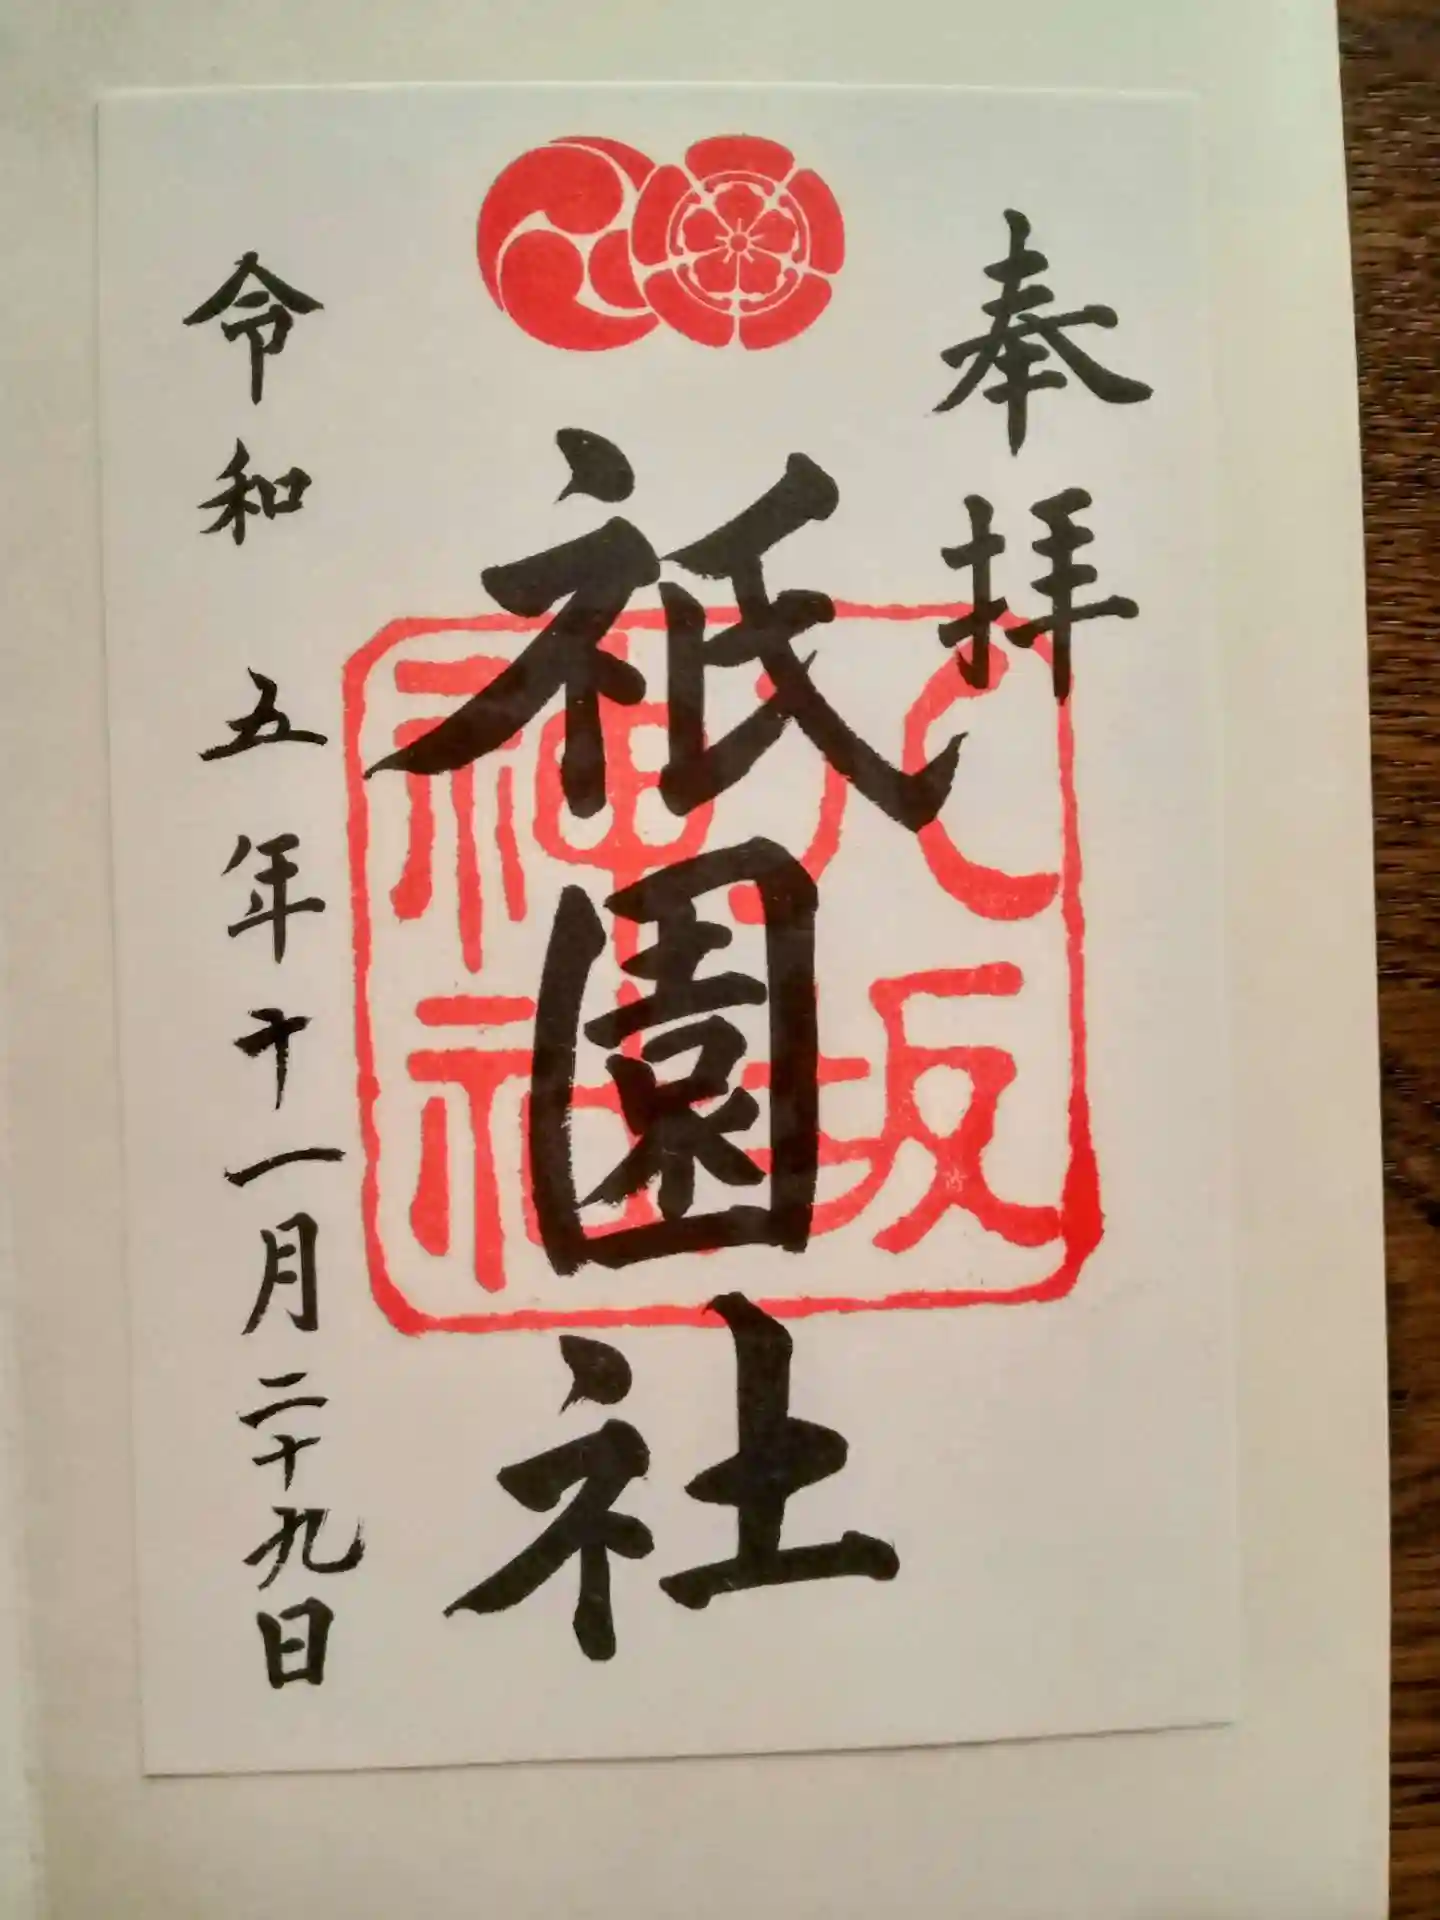 奉拝
祇園社
八坂
神社
令和五年十一月二十九日